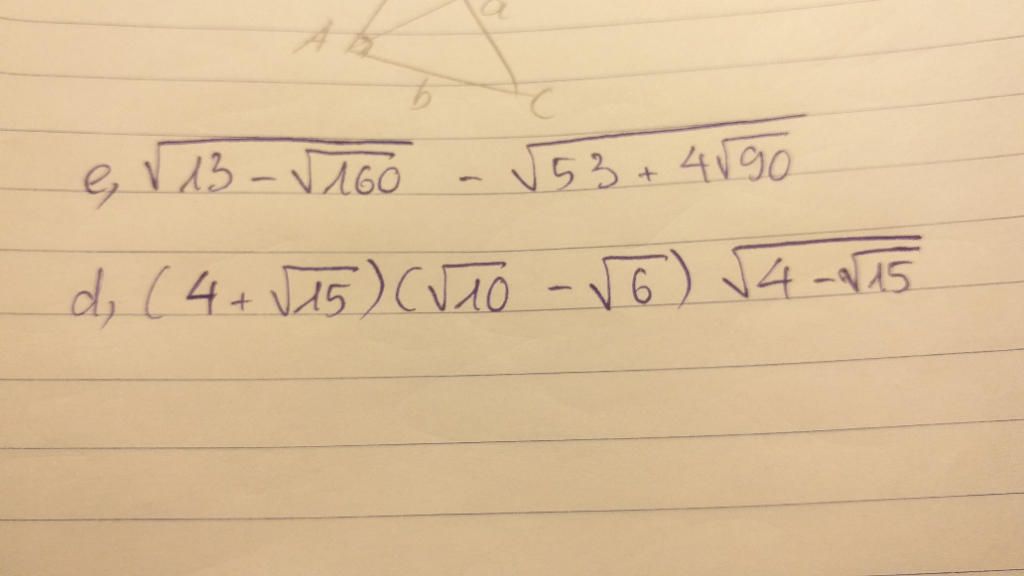 a
A
b C
e, √(13 - √160) - √(53 + 4√90)
d, (4 + √15)(√10 - √6) √(4 - √15)